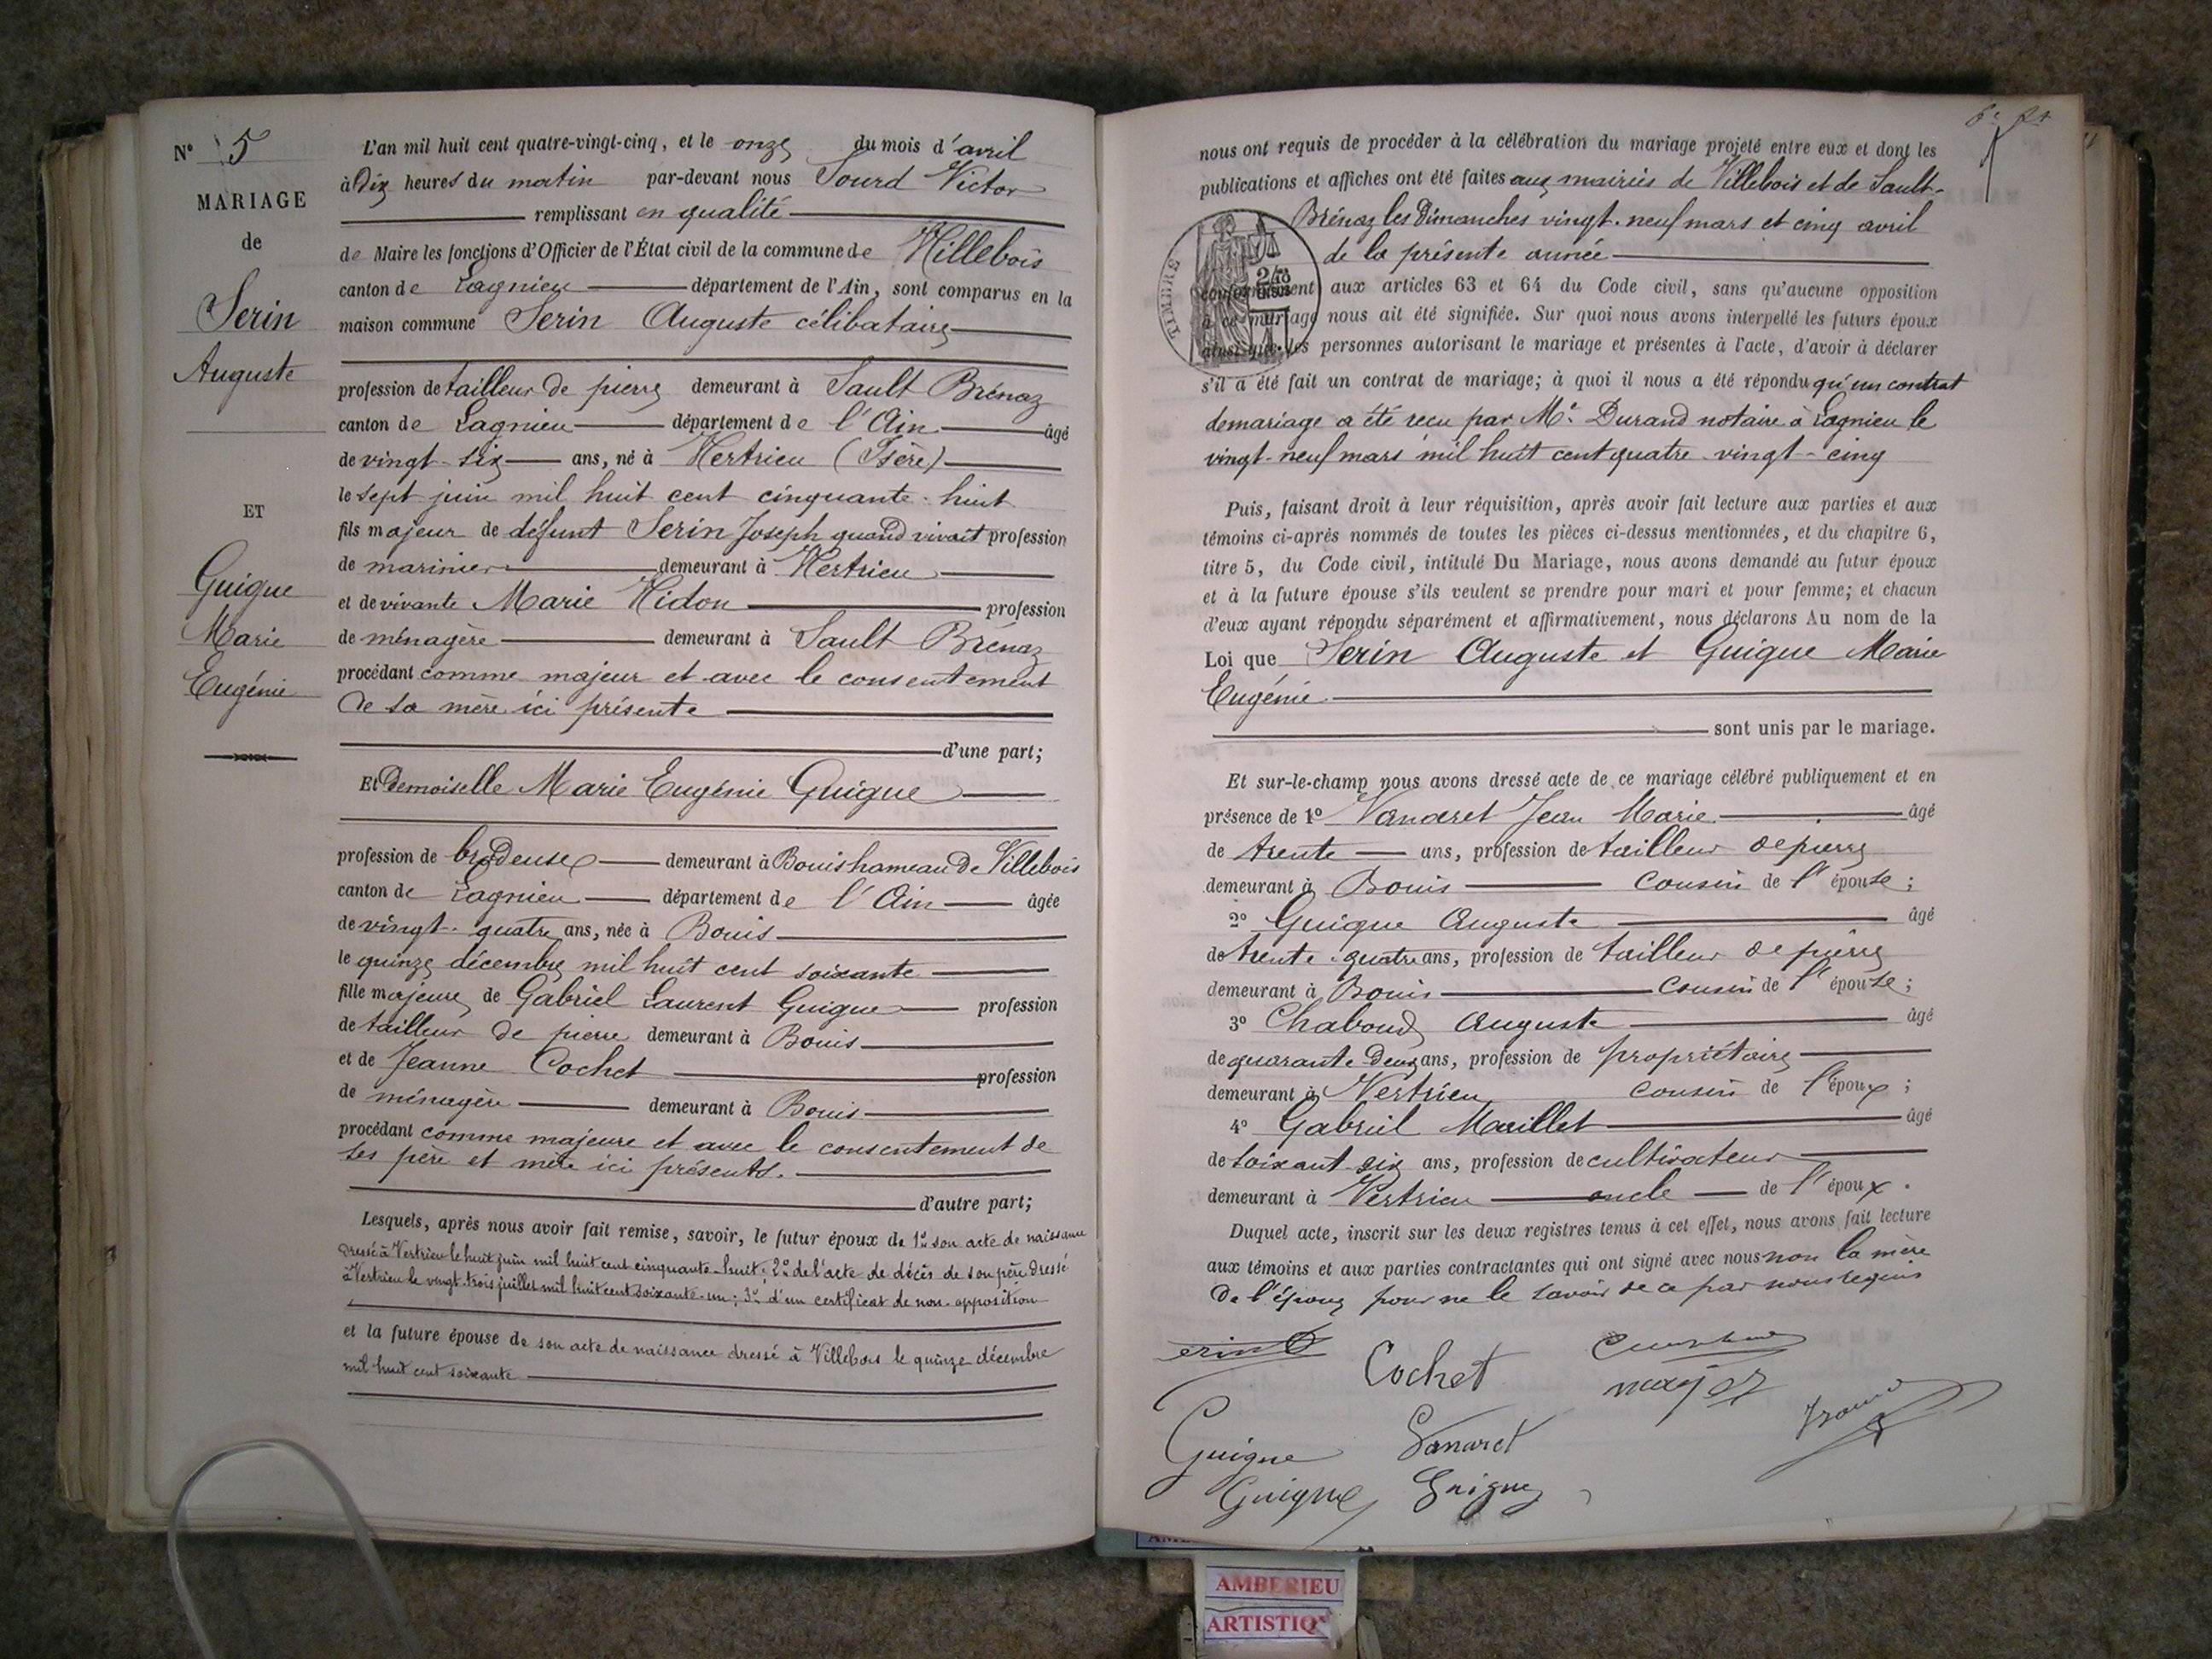 N° 5
MARIAGE
de
Serin
Auguste
ET
Guigue
Marie
Eugénie
L'an mil huit cent quatre-vingt-cinq, et le onze du mois d'avril
à Dix heures du matin par-devant nous Sourd Victor
remplissant en qualité
de Maire les fonctions d'Officier de l'État civil de la commune de Villebois
canton de Lagnieu département de l'Ain, sont comparus en la
maison commune Serin Auguste célibataire
profession de tailleur de pierre demeurant à Sault Brénaz
canton de Lagnieu département de l'Ain âgé
de vingt-six ans, né à Vertrieu (Isère)
le sept juin mil huit cent cinquante-huit
fils majeur de défunt Serin Joseph quand vivait profession
de marinier demeurant à Vertrieu
et de vivante Marie Vidon profession
de ménagère demeurant à Sault Brénaz
procédant comme majeur et avec le consentement
de sa mère ici présente
d'une part;
Et Demoiselle Marie Eugénie Guigue
profession de brodeuse demeurant à Bouis hameau de Villebois
canton de Lagnieu département de l'Ain âgée
de vingt-quatre ans, née à Bouis
le quinze décembre mil huit cent soixante
fille majeure de Gabriel Laurent Guigue profession
de tailleur de pierre demeurant à Bouis
et de Jeanne Cochet profession
de ménagère demeurant à Bouis
procédant comme majeure et avec le consentement de
ses père et mère ici présents.
d'autre part;
Lesquels, après nous avoir fait remise, savoir, le futur époux de 1° son acte de naissance
dressé à Vertrieu le huit juin mil huit cent cinquante-huit; 2° de l'acte de décès de son père dressé
à Vertrieu le vingt-trois juillet mil huit cent soixante-un; 3° d'un certificat de non-opposition
et la future épouse de son acte de naissance dressé à Villebois le quinze décembre
mil huit cent soixante
nous ont requis de procéder à la célébration du mariage projeté entre eux et dont les
publications et affiches ont été faites aux mairies de Villebois et de Sault-
Brénaz les Dimanches vingt-neuf mars et cinq avril
de la présente année
TIMBRE
conformément aux articles 63 et 64 du Code civil, sans qu'aucune opposition
à ce mariage nous ait été signifiée. Sur quoi nous avons interpellé les futurs époux
ainsi que les personnes autorisant le mariage et présentes à l'acte, d'avoir à déclarer
s'il a été fait un contrat de mariage; à quoi il nous a été répondu qu'un contrat
de mariage a été recu par Me Durand notaire à Lagnieu le
vingt-neuf mars mil huit cent quatre-vingt-cinq
Puis, faisant droit à leur réquisition, après avoir fait lecture aux parties et aux
témoins ci-après nommés de toutes les pièces ci-dessus mentionnées, et du chapitre 6,
titre 5, du Code civil, intitulé Du Mariage, nous avons demandé au futur époux
et à la future épouse s'ils veulent se prendre pour mari et pour femme; et chacun
d'eux ayant répondu séparément et affirmativement, nous déclarons Au nom de la
Loi que Serin Auguste et Guigue Marie
Eugénie
sont unis par le mariage.
Et sur-le-champ nous avons dressé acte de ce mariage célébré publiquement et en
présence de 1° Vanaret Jean Marie âgé
de trente ans, profession de tailleur de pierre
demeurant à Bouis cousin de l'épouse;
2° Guigue Auguste âgé
de trente-quatre ans, profession de tailleur de pierre
demeurant à Bouis cousin de l'épouse;
3° Chaboud Auguste âgé
de quarante deux ans, profession de propriétaire
demeurant à Vertrieu cousin de l'époux;
4° Gabriel Marillet âgé
de soixant-six ans, profession de cultivateur
demeurant à Vertrieu oncle de l'époux.
Duquel acte, inscrit sur les deux registres tenus à cet effet, nous avons fait lecture
aux témoins et aux parties contractantes qui ont signé avec nous non la mère
de l'époux pour ne le savoir de ce par nous requis
Cochet
Guigue
Vanaret
Guigue
Guigue
AMBERIEU
ARTISTIQ